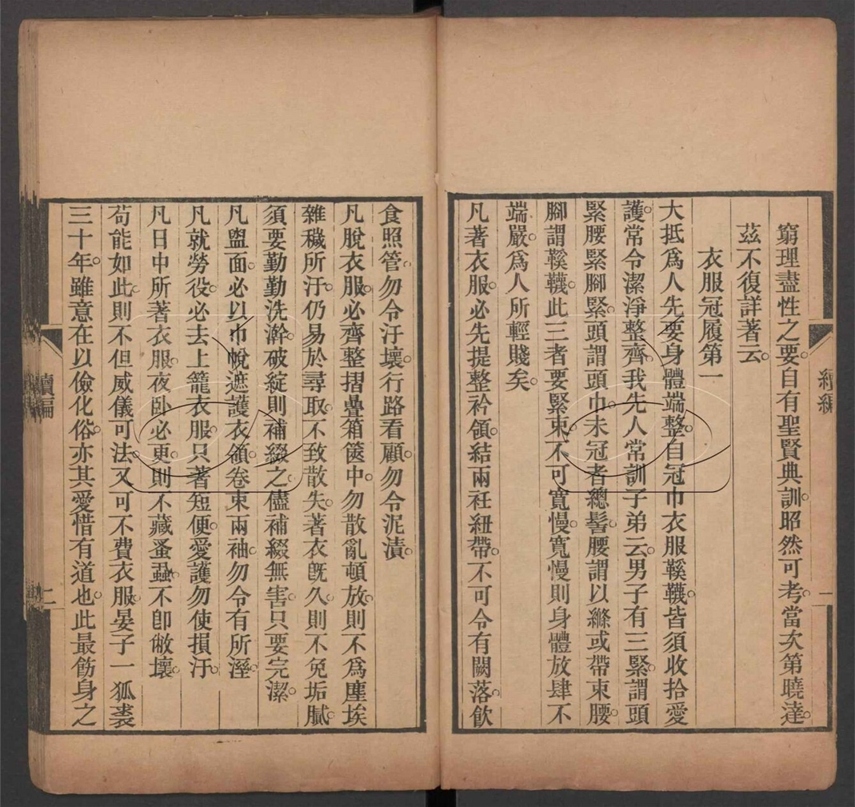 窮理盡性之要。自有聖賢典訓。昭然可考。當次第曉達。
茲不復詳著云。
衣服冠履第一
大抵爲人先要身體端整。自冠巾衣服鞵韈。皆須收拾愛
護。常令潔淨整齊。我先人常訓子弟云。男子有三緊。謂頭
緊腰緊腳緊。頭謂頭巾。未冠者總髻。腰謂以絛或帶束腰。
腳謂鞵韈。此三者要緊束。不可寬慢。寬慢則身體放肆不
端嚴。爲人所輕賤矣。
凡著衣服。必先提整衿領。結兩衽紐帶。不可令有闕落。飲
食照管。勿令汙壞。行路看顧。勿令泥漬。
凡脫衣服。必齊整摺疊箱篋中。勿散亂頓放。則不爲塵埃
雜穢所汙。仍易於尋取。不致散失。著衣旣久。則不免垢膩。
須要勤勤洗澣。破綻則補綴之。儘補綴無害。只要完潔。
凡盥面。必以巾帨遮護衣領。卷束兩袖。勿令有所溼。
凡就勞役。必去上籠衣服。只著短便。愛護勿使損汙。
凡日中所著衣服。夜臥必更。則不藏蚤蝨。不卽敝壞。
苟能如此。則不但威儀可法。又可不費衣服。晏子一狐裘
三十年。雖意在以儉化俗。亦其愛惜有道也。此最飭身之
續編
二
一